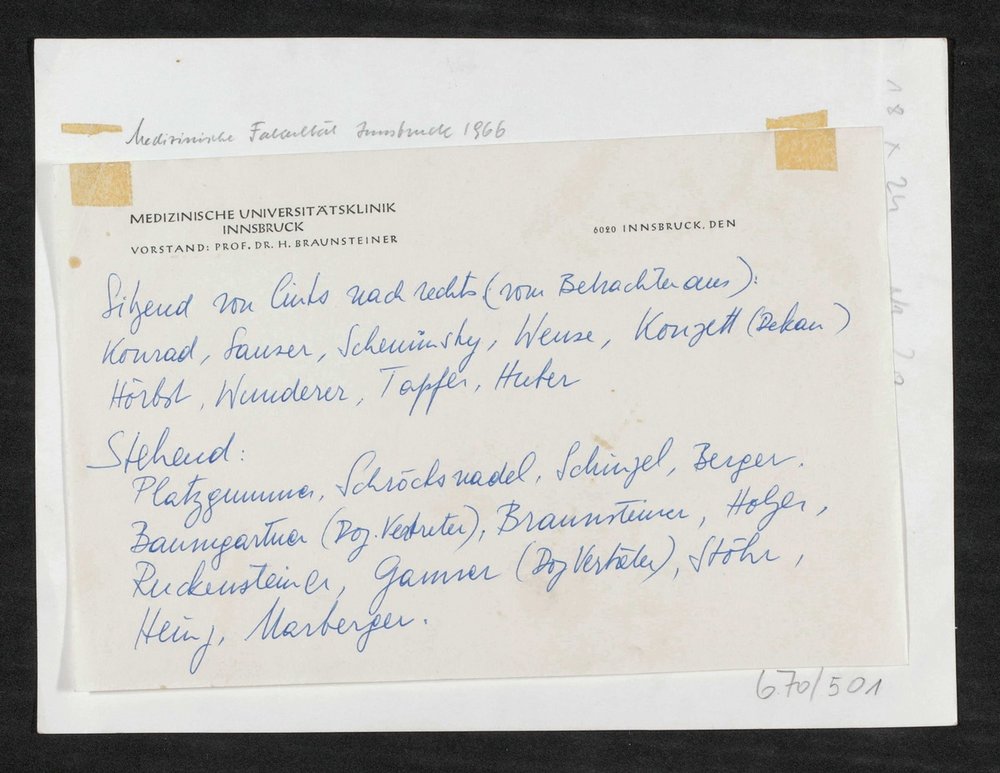 Medizinische Fakultät Innsbruck 1966
18 x 24
MEDIZINISCHE UNIVERSITÄTSKLINIK
INNSBRUCK
VORSTAND: PROF. DR. H. BRAUNSTEINER
6020 INNSBRUCK, DEN
Sitzend von links nach rechts (vom Betrachter aus):
Konrad, Sauser, Scheminsky, Wense, Konzett (Dekan)
Hörbst, Wunderer, Tapfer, Huber
Stehend:
Platzgummer, Schröcksnadel, Schinzel, Berger,
Baumgartner (Doz. Vertreter), Braunsteiner, Holzer,
Ruckensteiner, Gamner (Doz Vertreter), Stöhr,
Heinz, Marberger.
670/501